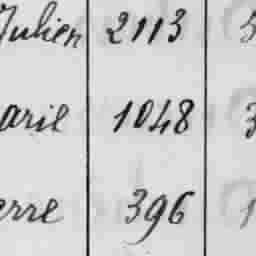 Julien 2113
arie 1048 3
erre 396 1